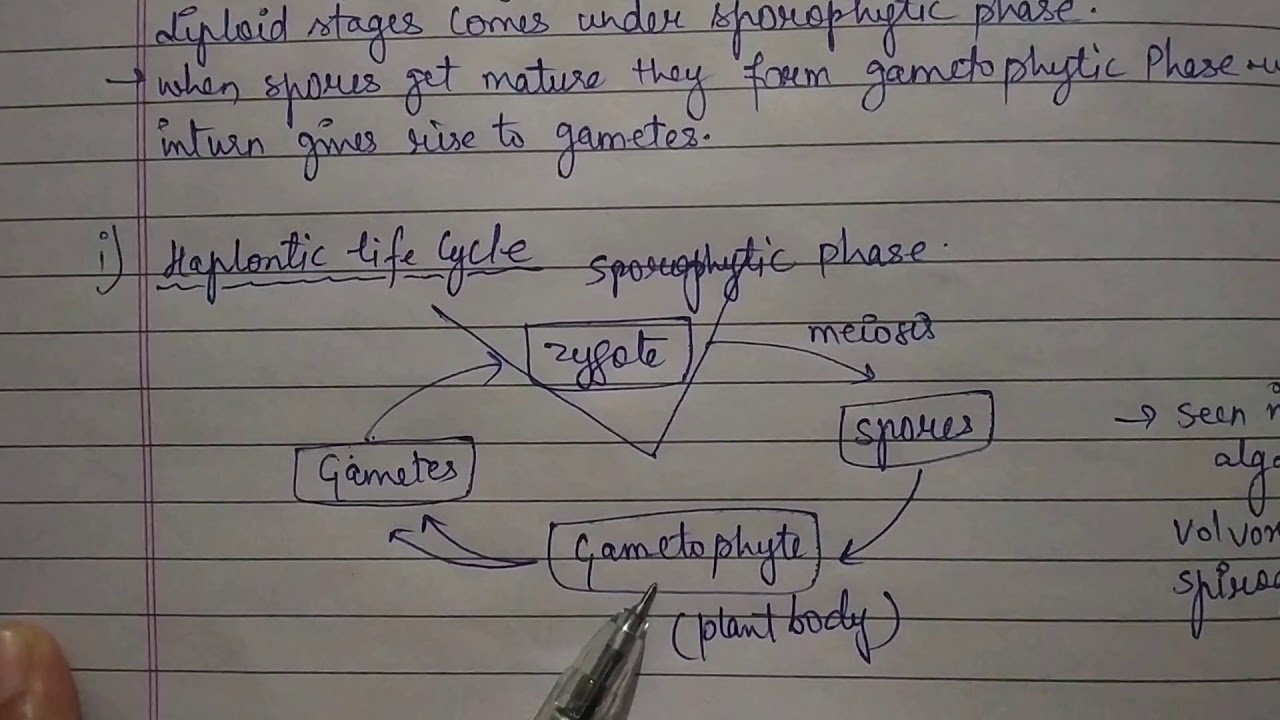 diploid stages comes under sporophytic phase.
→ when spores get mature they form gametophytic Phase
inturn gives rise to gametes.
i) Haplontic life Cycle sporophytic phase.
zygote
meiosis
spores
→ seen
Gametes
Gametophyte
(plant body)